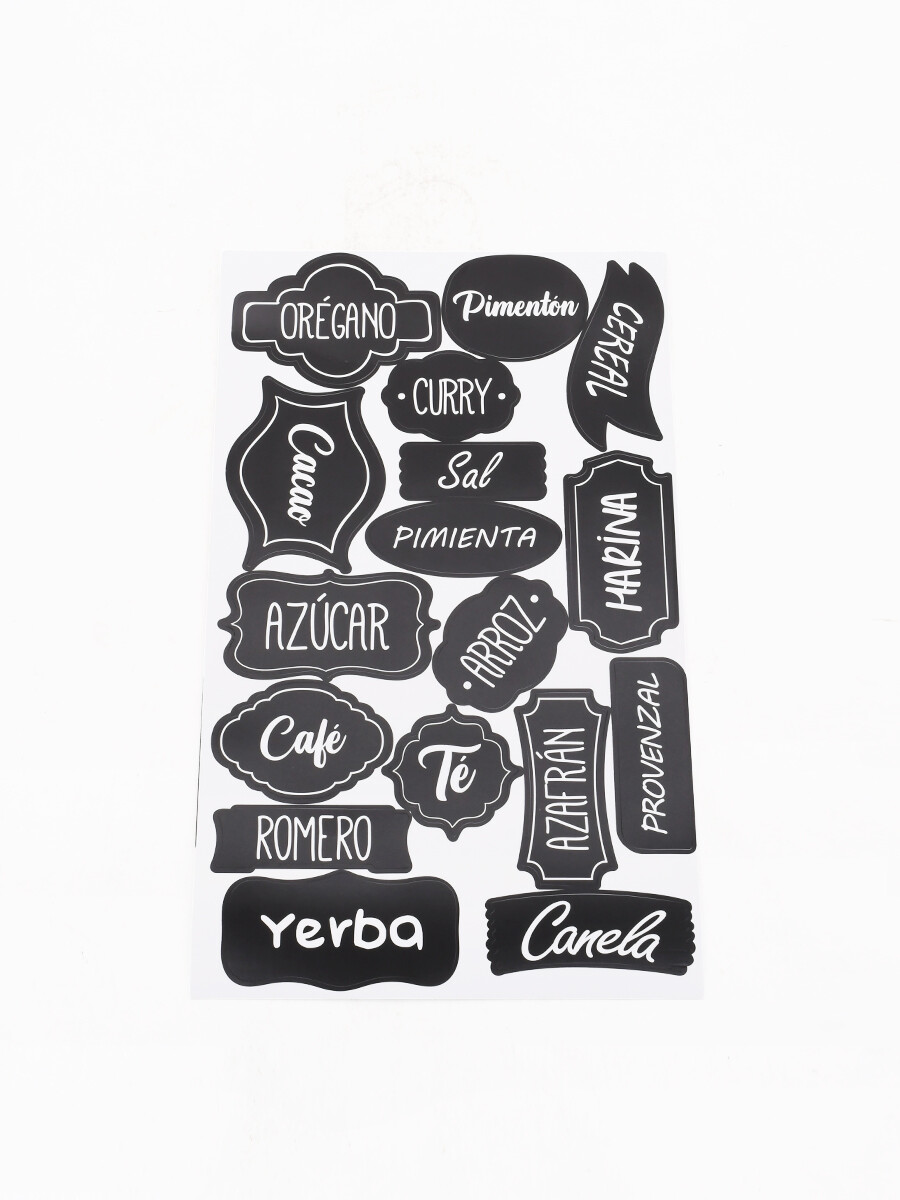 ORÉGANO
Pimentón
CEREAL
CURRY
Cacao
Sal
PIMIENTA
HARINA
AZÚCAR
ARROZ
PROVENZAL
Café
Té
AZAFRÁN
ROMERO
Yerba
Canela